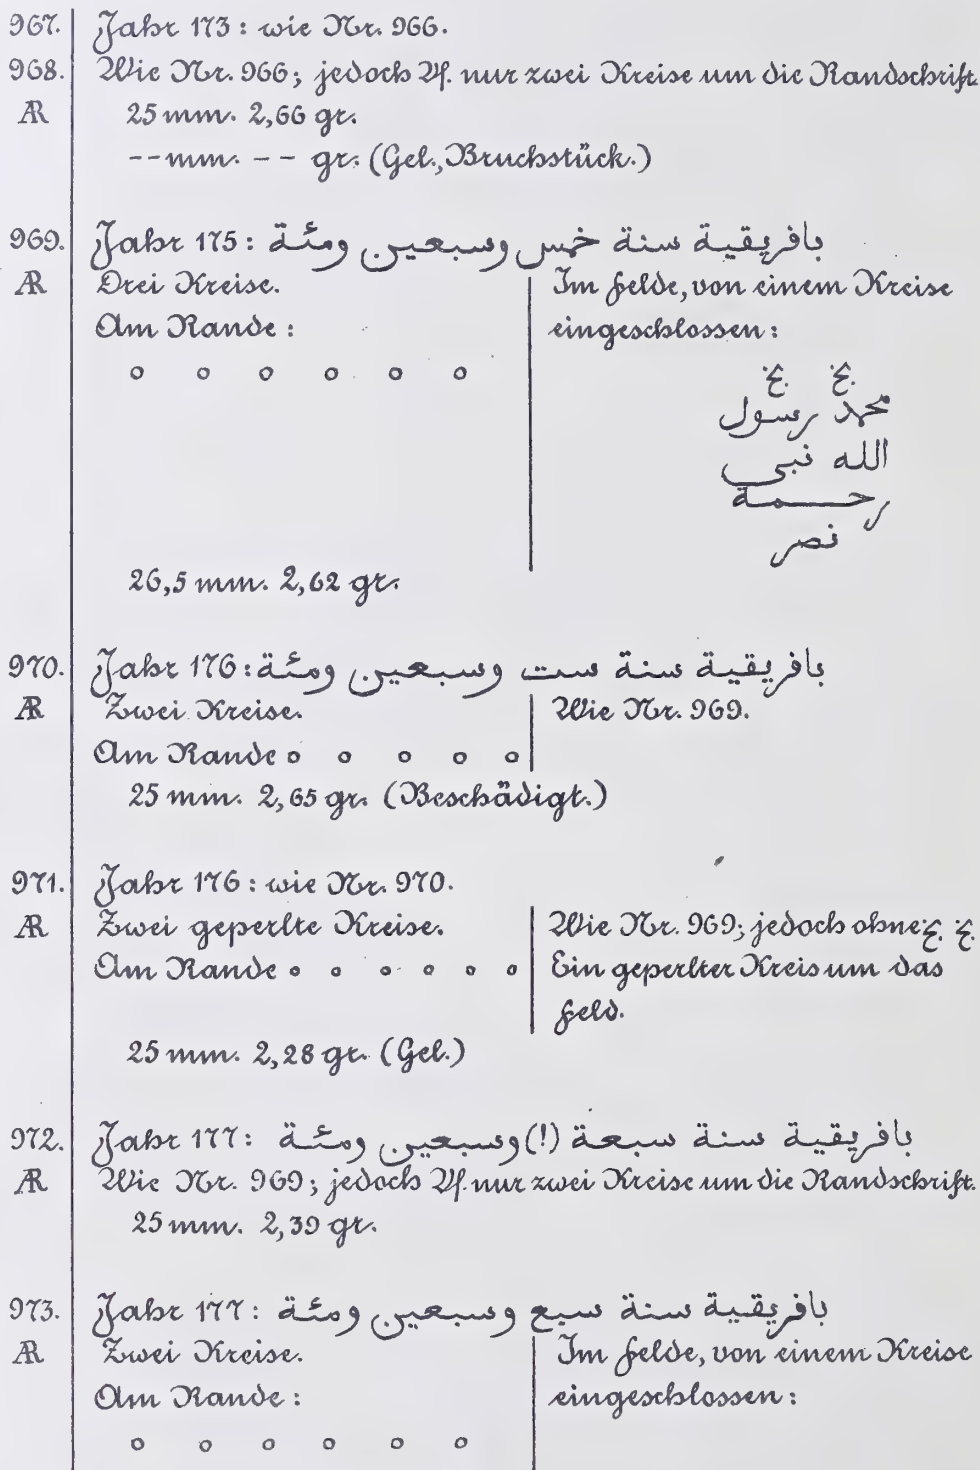 967. Jahr 173 : wie Nr. 966.
968. Wie Nr. 966; jedoch Vf. nur zwei Kreise um die Randschrift.
AR 25 mm. 2,66 gr.
-- mm. -- gr. (Gel., Bruchstück.)
969. Jahr 175 : بافريقية سنة خمس وسبعين ومئة
AR Drei Kreise.
Am Rande :
o o o o o o
26,5 mm. 2,62 gr.
Im Felde, von einem Kreise
eingeschlossen :
بخ بخ
محمد رسول
الله نبى
رحمة
نصر
970. Jahr 176 : بافريقية سنة ست وسبعين ومئة
AR Zwei Kreise.
Am Rande o o o o o
Wie Nr. 969.
25 mm. 2,65 gr. (Beschädigt.)
971. Jahr 176 : wie Nr. 970.
AR Zwei geperlte Kreise.
Am Rande o o o o o o
Wie Nr. 969; jedoch ohne بخ بخ
Ein geperlter Kreis um das
Feld.
25 mm. 2,28 gr. (Gel.)
972. Jahr 177 : بافريقية سنة سبعة (!) وسبعين ومئة
AR Wie Nr. 969; jedoch Vf. nur zwei Kreise um die Randschrift.
25 mm. 2,39 gr.
973. Jahr 177 : بافريقية سنة سبع وسبعين ومئة
AR Zwei Kreise.
Am Rande :
o o o o o o
Im Felde, von einem Kreise
eingeschlossen :